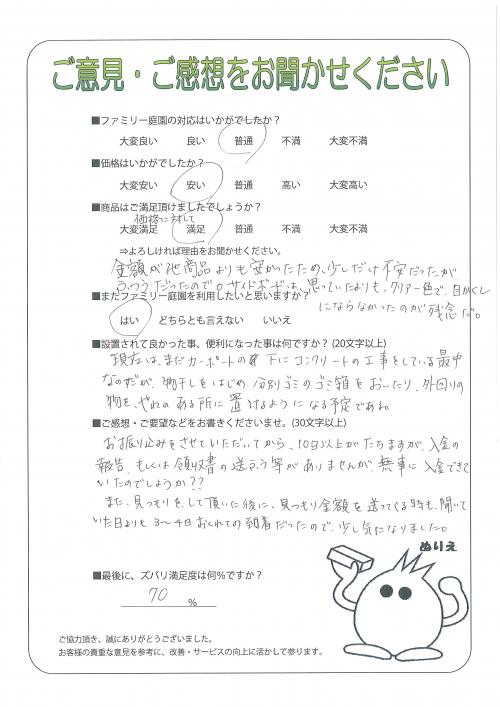 ご意見・ご感想をお聞かせください
■ファミリー庭園の対応はいかがでしたか？
大変良い 良い 普通 不満 大変不満
■価格はいかがでしたか？
大変安い 安い 普通 高い 大変高い
■商品はご満足頂けましたでしょうか？
価格に対して
大変満足 満足 普通 不満 大変不満
⇒よろしければ理由をお聞かせください。
金額が他商品よりも安かったため、少しだけ不安だったが
ふつうだったので。サイドボードは、思っていたよりも、クリアー色で、目かくし
にならなかったのが残念だ。
■またファミリー庭園を利用したいと思いますか？
はい どちらとも言えない いいえ
■設置されて良かった事、便利になった事は何ですか？(20文字以上)
現在は、まだカーポートの下にコンクリートの工事をしている最中
なのだが、物干しをはじめ、分別ゴミのゴミ箱をおいたり、外回りの
物を、やねのある所に置けるようになる予定である。
■ご感想・ご要望などをお書きくださいませ。(30文字以上)
お振り込みをさせていただいてから、10日以上がたちますが、入金の
報告、もしくは領収書の送ふう等がありませんが、無事に入金できて
いたのでしょうか??
また、見つもりをして頂いた後に、見つもり金額を送ってくる時も、聞いて
いた日よりも3〜4日おくれての到着だったので、少し気になりました。
ぬりえ
■最後に、ズバリ満足度は何%ですか？
70 %
ご協力頂き、誠にありがとうございました。
お客様の貴重な意見を参考に、改善・サービスの向上に活かして参ります。